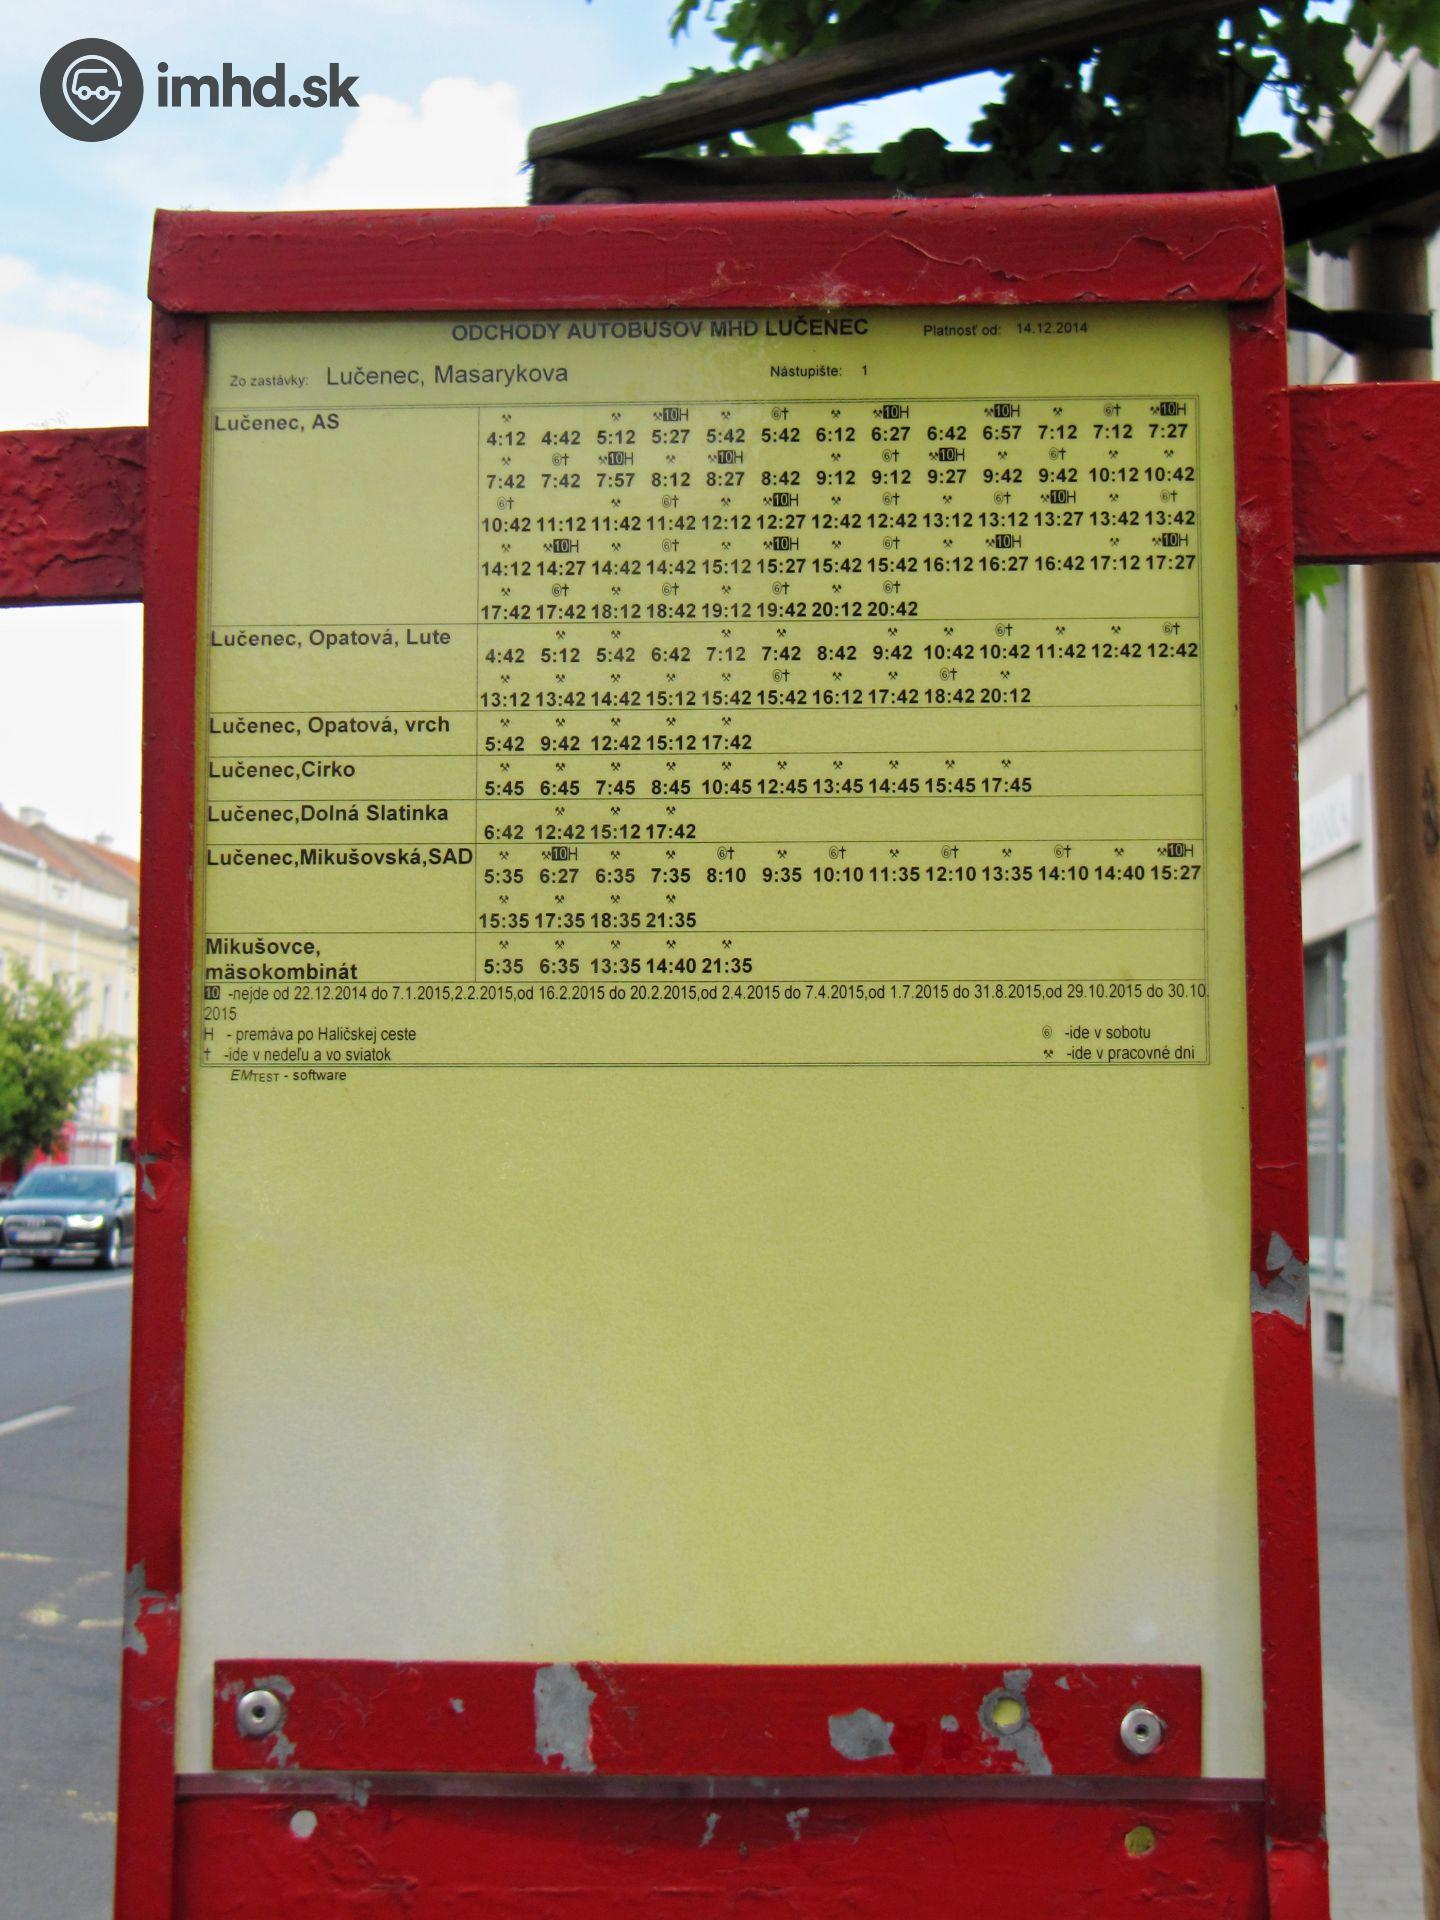 imhd.sk
ODCHODY AUTOBUSOV MHD LUČENEC Platnosť od: 14.12.2014
Zo zastávky: Lučenec, Masarykova Nástupište: 1
Lučenec, AS ⚒ ⚒ ⚒10H ⚒ ⑥† ⚒ ⚒10H ⚒10H ⚒ ⑥† ⚒10H
4:12 4:42 5:12 5:27 5:42 5:42 6:12 6:27 6:42 6:57 7:12 7:12 7:27
⚒ ⑥† ⚒10H ⚒ ⚒10H ⚒ ⑥† ⚒10H ⚒ ⑥† ⚒ ⚒
7:42 7:42 7:57 8:12 8:27 8:42 9:12 9:12 9:27 9:42 9:42 10:12 10:42
⑥† ⚒ ⑥† ⚒ ⚒10H ⚒ ⑥† ⚒ ⑥† ⚒10H ⚒ ⑥†
10:42 11:12 11:42 11:42 12:12 12:27 12:42 12:42 13:12 13:12 13:27 13:42 13:42
⚒ ⚒10H ⚒ ⑥† ⚒ ⚒10H ⚒ ⑥† ⚒ ⚒10H ⚒ ⚒10H
14:12 14:27 14:42 14:42 15:12 15:27 15:42 15:42 16:12 16:27 16:42 17:12 17:27
⚒ ⑥† ⚒ ⑥† ⚒ ⑥† ⚒ ⑥†
17:42 17:42 18:12 18:42 19:12 19:42 20:12 20:42
Lučenec, Opatová, Lute ⚒ ⚒ ⚒ ⚒ ⚒ ⚒ ⑥† ⚒ ⚒ ⑥†
4:42 5:12 5:42 6:42 7:12 7:42 8:42 9:42 10:42 10:42 11:42 12:42 12:42
⚒ ⚒ ⚒ ⚒ ⚒ ⑥† ⚒ ⚒ ⑥† ⚒
13:12 13:42 14:42 15:12 15:42 15:42 16:12 17:42 18:42 20:12
Lučenec, Opatová, vrch ⚒ ⚒ ⚒ ⚒ ⚒
5:42 9:42 12:42 15:12 17:42
Lučenec,Cirko ⚒ ⚒ ⚒ ⚒ ⚒ ⚒ ⚒ ⚒ ⚒ ⚒
5:45 6:45 7:45 8:45 10:45 12:45 13:45 14:45 15:45 17:45
Lučenec,Dolná Slatinka ⚒ ⚒ ⚒
6:42 12:42 15:12 17:42
Lučenec,Mikušovská,SAD ⚒ ⚒10H ⚒ ⚒ ⑥† ⚒ ⑥† ⚒ ⑥† ⚒ ⑥† ⚒ ⚒10H
5:35 6:27 6:35 7:35 8:10 9:35 10:10 11:35 12:10 13:35 14:10 14:40 15:27
⚒ ⚒ ⚒ ⚒
15:35 17:35 18:35 21:35
Mikušovce, ⚒ ⚒ ⚒ ⚒ ⚒
mäsokombinát 5:35 6:35 13:35 14:40 21:35
10 -nejde od 22.12.2014 do 7.1.2015,2.2.2015,od 16.2.2015 do 20.2.2015,od 2.4.2015 do 7.4.2015,od 1.7.2015 do 31.8.2015,od 29.10.2015 do 30.10.
2015
H - premáva po Haličskej ceste ⑥ -ide v sobotu
† -ide v nedeľu a vo sviatok ⚒ -ide v pracovné dni
EMTEST - software